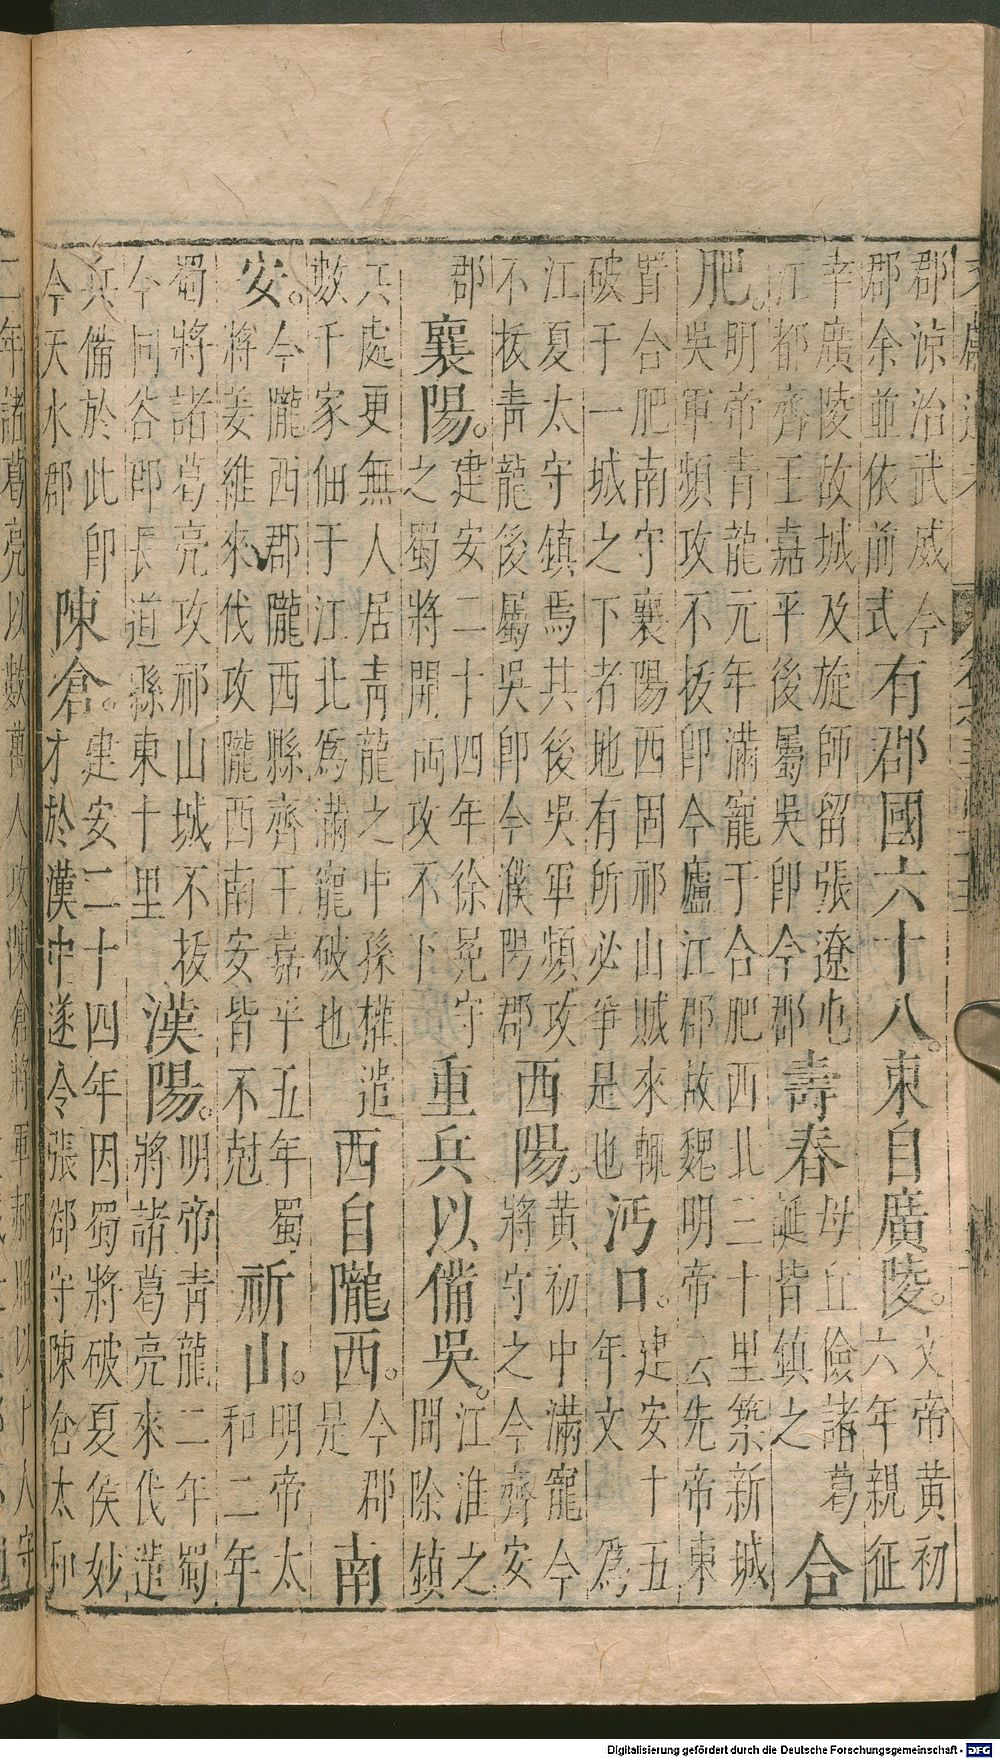 郡涼治武威今
郡余並依前式
有郡國六十八。東自廣陵。
文帝黃初
六年親征
幸廣陵故城及旋師留張遼屯
江都齊王嘉平後屬吳卽今郡
壽春
母丘儉諸葛
誕皆鎮之
合
肥。
明帝青龍元年滿寵于合肥西北三十里築新城
吳軍頻攻不拔卽今廬江郡故魏明帝云先帝東
置合肥南守襄陽西固祁山賊來輒
破于一城之下者地有所必爭是也
沔口。
建安十五
年文爲
江夏太守鎮焉共後吳軍頻攻
不拔青龍後屬吳卽今漢陽郡
西陽。
黃初中滿寵今
將守之今齊安
郡
襄陽。
建安二十四年徐晃守
之蜀將關羽攻不下
重兵以備吳。
江淮之
間除鎮
兵處更無人居青龍之中孫權遣
數千家佃于江北爲滿寵破也
西自隴西。
今郡
是
南
安。
今隴西郡隴西縣齊王嘉平五年蜀
將姜維來伐攻隴西南安皆不尅
祈山。
明帝太
和二年
蜀將諸葛亮攻祁山城不拔
今同谷郡長道縣東十里
漢陽。
明帝青龍二年蜀
將諸葛亮來伐遣
兵備於此卽
今天水郡
陳倉。
建安二十四年因蜀將破夏侯妙
才於漢中遂令張郃守陳倉太和
二年諸葛亮以數萬人攻陳倉將軍郝昭以千人守
Digitalisierung gefördert durch die Deutsche Forschungsgemeinschaft - DFG